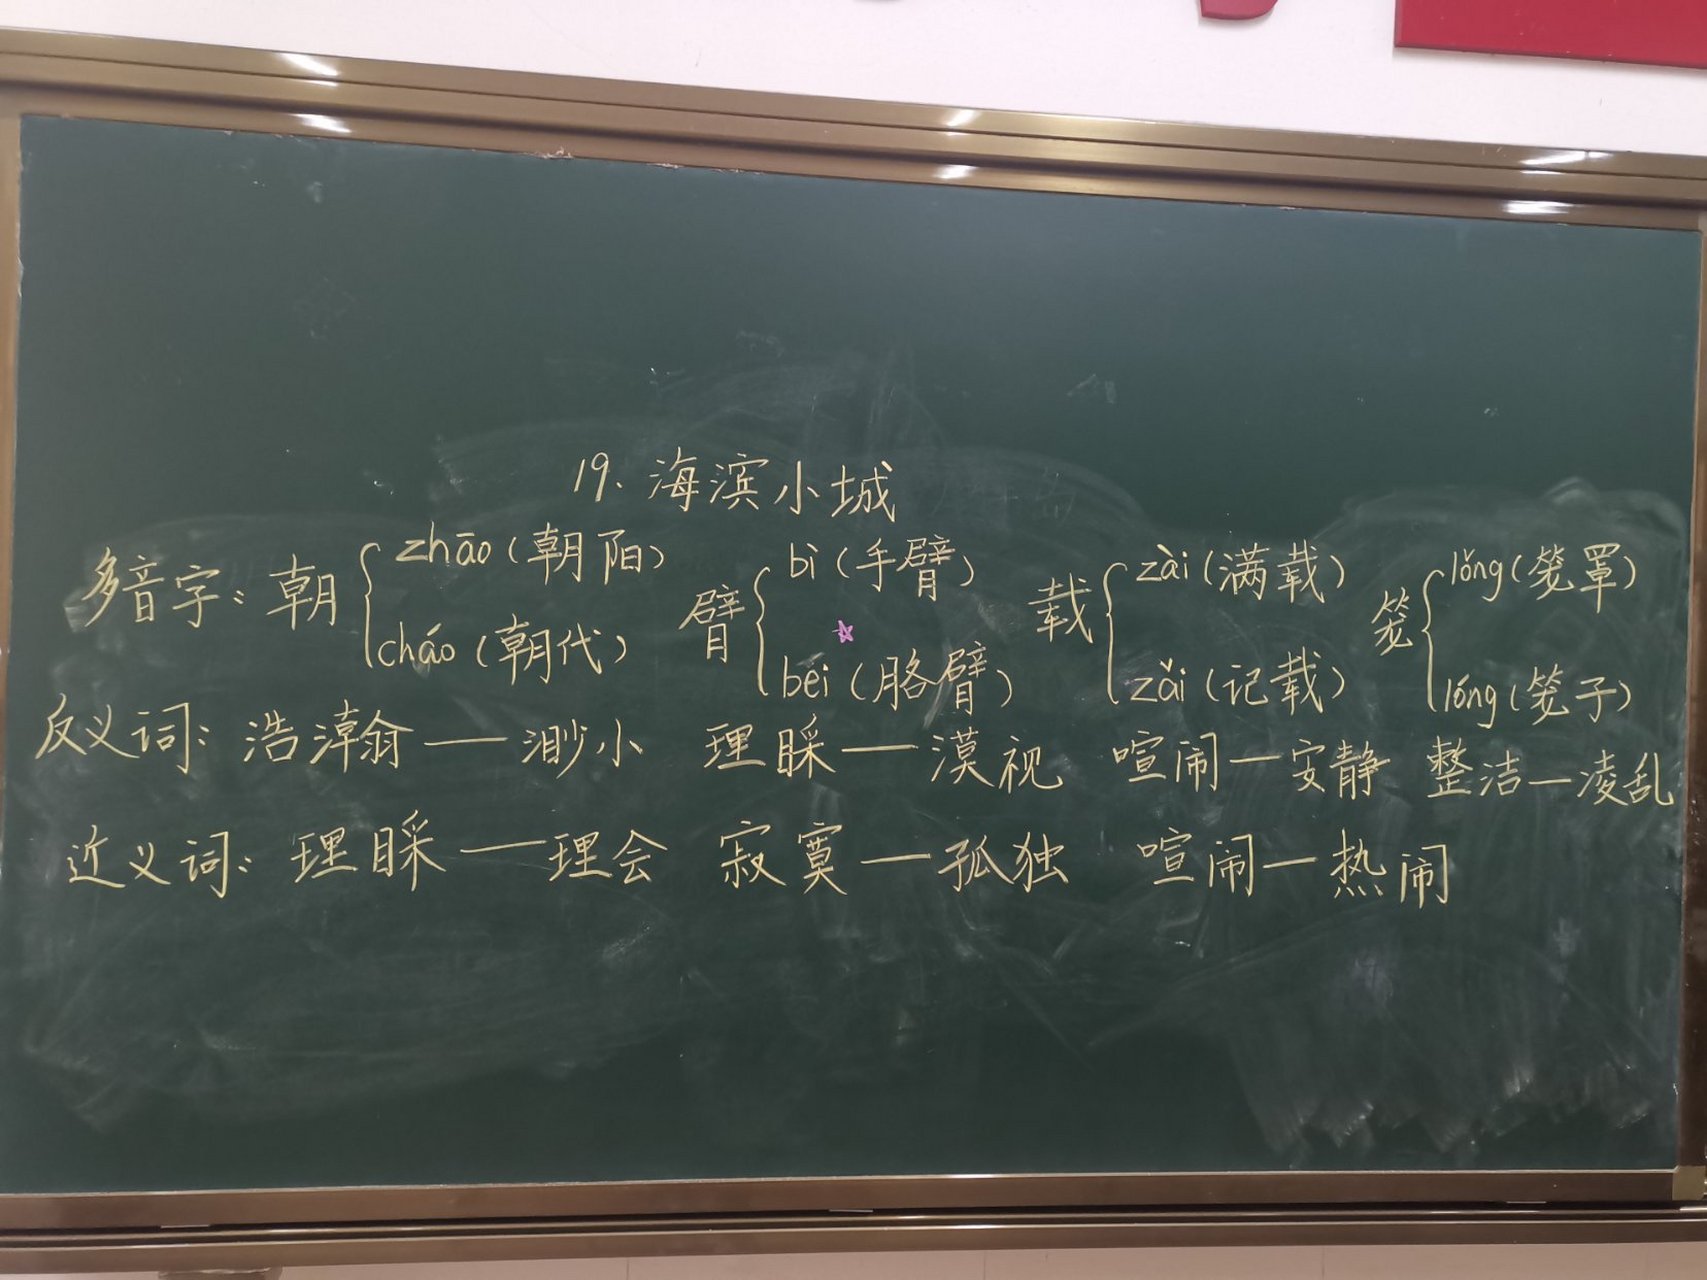 19. 海滨小城
多音字：朝 zhāo（朝阳） cháo（朝代） 臂 bì（手臂） bei（胳臂） 载 zài（满载） zǎi（记载） 笼 lǒng（笼罩） lóng（笼子）
反义词：浩瀚——渺小 理睬——漠视 喧闹—安静 整洁—凌乱
近义词：理睬——理会 寂寞——孤独 喧闹—热闹